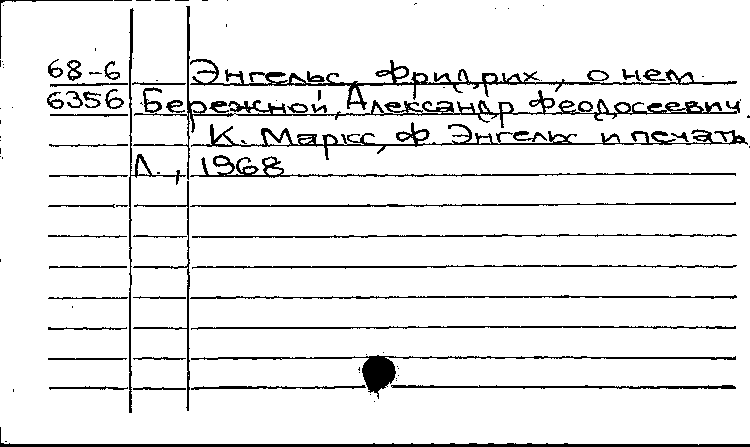 68-6 Энгельс, Фридрих, о нем
6356 Бережной, Александр Феодосеевич.
К. Маркс, Ф. Энгельс и печать
Л., 1968